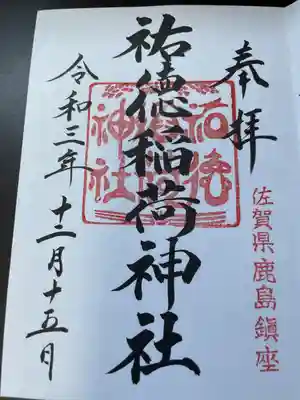 奉拝
佐賀県鹿島鎮座
祐徳稲荷神社
令和三年十二月十五日